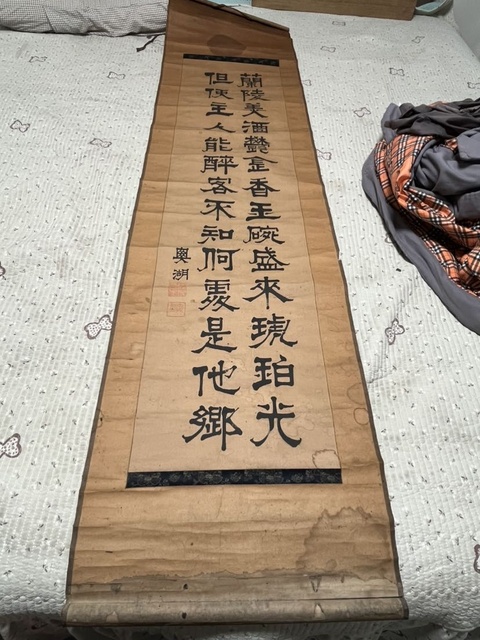 蘭陵美酒鬱金香玉碗盛來琥珀光
但使主人能醉客不知何處是他鄉
奥湖